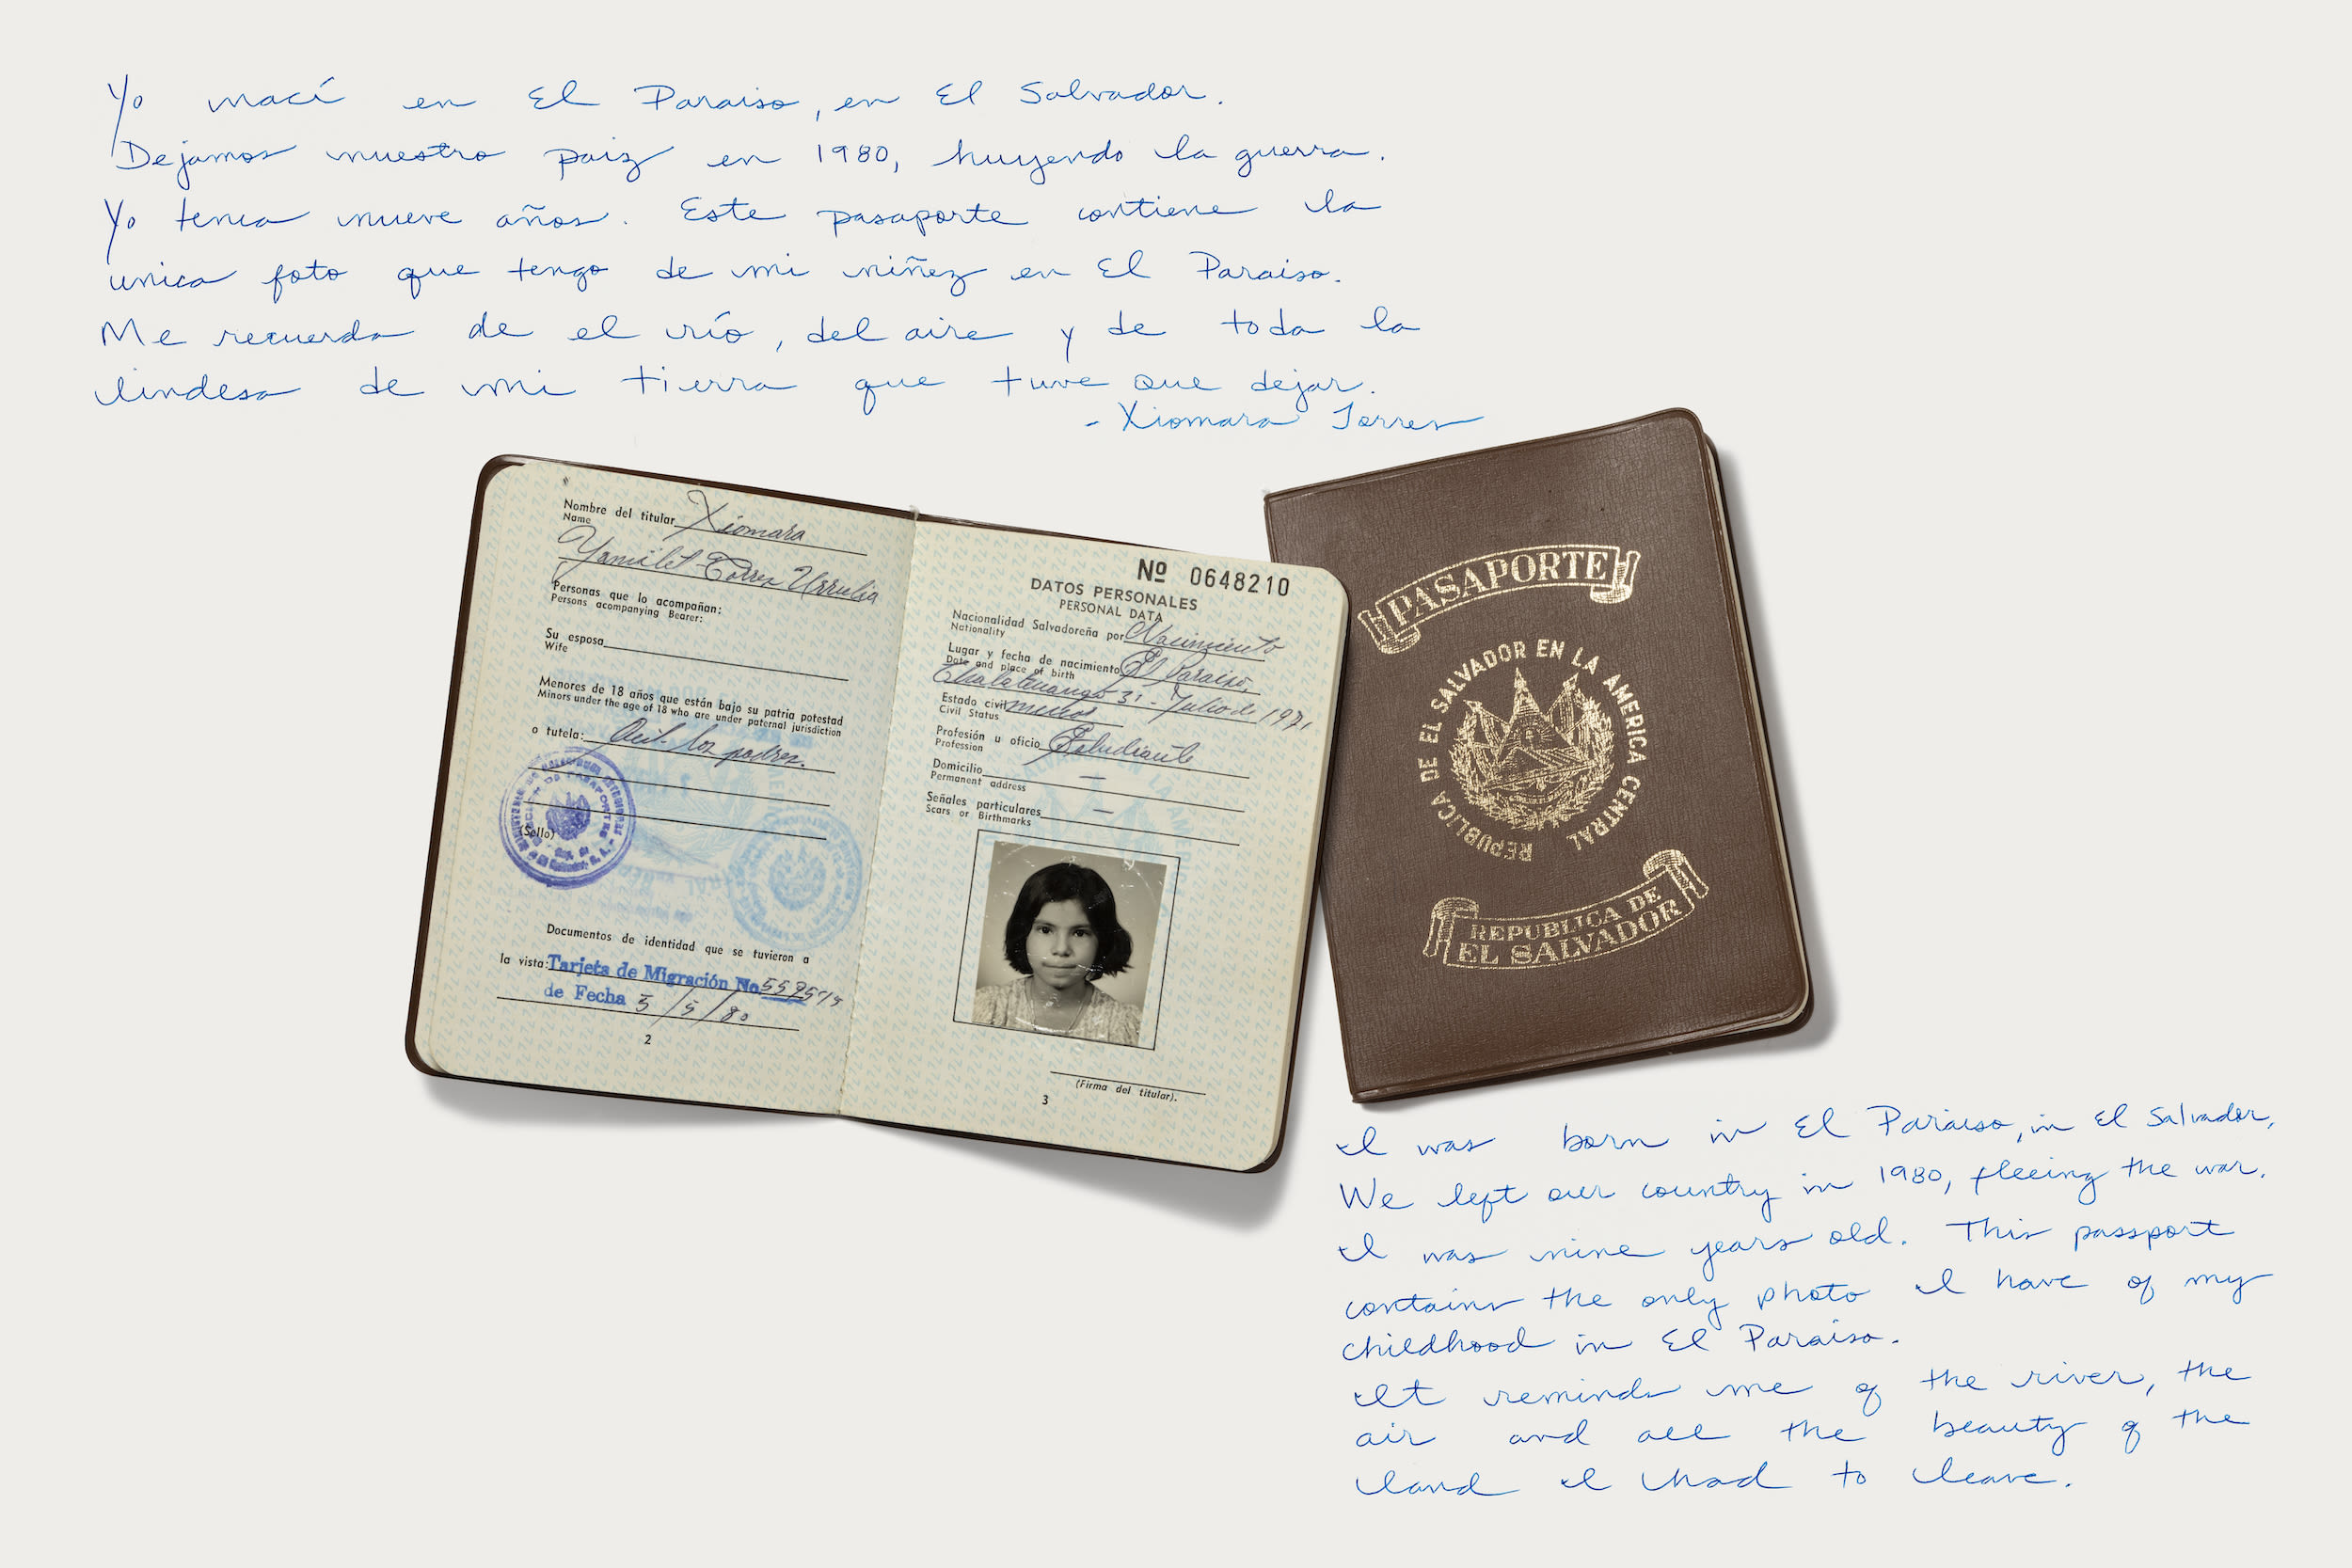 Yo nací en El Paraiso, en El Salvador.
Dejamos nuestro paiz en 1980, huyendo la guerra.
Yo tenia nueve años. Este pasaporte contiene la
unica foto que tengo de mi niñez en El Paraiso.
Me recuerda de el río, del aire y de toda la
lindesa de mi tierra que tuve que dejar.
- Xiomara Torres
Nombre del titular Xiomara
Name
Yamilet Torres Urrutia
Personas que lo acompañan:
Persons acompanying Bearer:
Su esposa
Wife
Menores de 18 años que están bajo su patria potestad
Minors under the age of 18 who are under paternal jurisdiction
o tutela: Aut. los padres.
(Sello)
Documentos de identidad que se tuvieron a
la vista: Tarjeta de Migración No
de Fecha 5/5/80
2
Nº 0648210
DATOS PERSONALES
PERSONAL DATA
Nacionalidad Salvadoreña por Nacimiento
Nationality
Lugar y fecha de nacimiento El Paraiso,
Date and place of birth
Chalatenango 31 - Julio de 1971
Estado civil menor
Civil Status
Profesión u oficio Estudiante
Profession
Domicilio —
Permanent address
Señales particulares —
Scars or Birthmarks
(Firma del titular).
3
PASAPORTE
REPUBLICA DE EL SALVADOR EN LA AMERICA CENTRAL
REPUBLICA DE
EL SALVADOR
I was born in El Paraiso, in El Salvador,
We left our country in 1980, fleeing the war.
I was nine years old. This passport
contains the only photo I have of my
childhood in El Paraiso.
It reminds me of the river, the
air and all the beauty of the
land I had to leave.